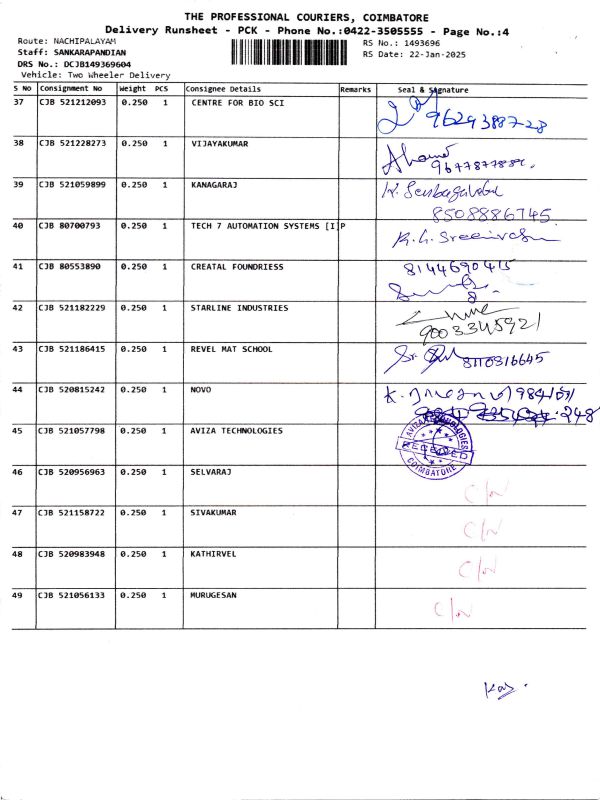 THE PROFESSIONAL COURIERS, COIMBATORE
Delivery Runsheet - PCK - Phone No.:0422-3505555 - Page No.:4
Route: NACHIPALAYAM RS No.: 1493696
Staff: SANKARAPANDIAN RS Date: 22-Jan-2025
DRS No.: DCJB149369604
Vehicle: Two Wheeler Delivery
S No Consignment No Weight PCS Consignee Details Remarks Seal & Signature
37 CJB 521212093 0.250 1 CENTRE FOR BIO SCI
9629388728
38 CJB 521228273 0.250 1 VIJAYAKUMAR
39 CJB 521059899 0.250 1 KANAGARAJ
8508886745
40 CJB 80700793 0.250 1 TECH 7 AUTOMATION SYSTEMS [I]P
41 CJB 80553890 0.250 1 CREATAL FOUNDRIESS 8144690415
42 CJB 521182229 0.250 1 STARLINE INDUSTRIES
9003345921
43 CJB 521186415 0.250 1 REVEL MAT SCHOOL 8110316645
44 CJB 520815242 0.250 1 NOVO
45 CJB 521057798 0.250 1 AVIZA TECHNOLOGIES AVIZA TECHNOLOGIES
RECEIVED
COIMBATORE
46 CJB 520956963 0.250 1 SELVARAJ C/N
47 CJB 521158722 0.250 1 SIVAKUMAR C/N
48 CJB 520983948 0.250 1 KATHIRVEL C/N
49 CJB 521056133 0.250 1 MURUGESAN C/N